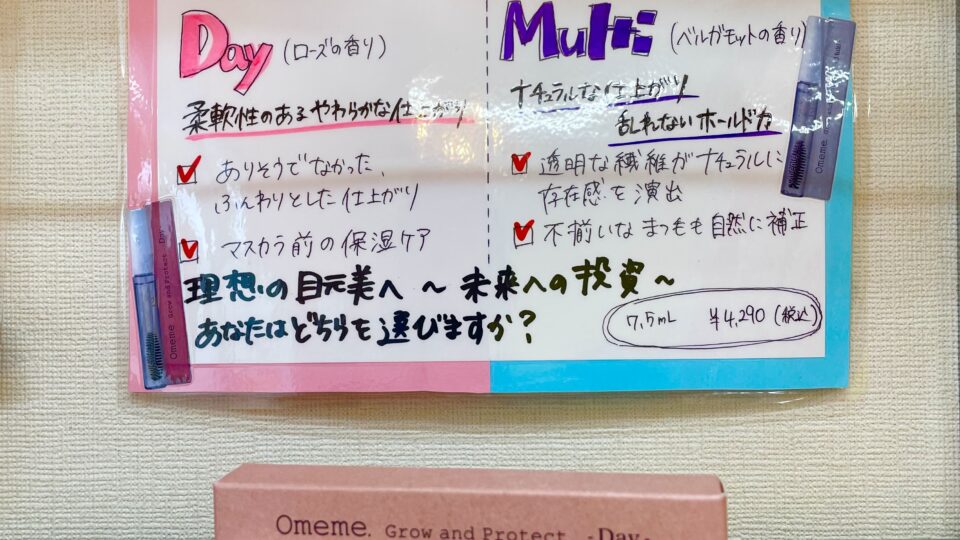 Day (ローズの香り)
柔軟性のあるやわらかな仕上がり
ありそうでなかった、
ふんわりとした仕上がり
マスカラ前の保湿ケア
Multi (ベルガモットの香り)
ナチュラルな仕上がり
乱れないホールド力
透明な繊維がナチュラルに
存在感を演出
不揃いなまつもも自然に補正
理想の目元美へ ～ 未来への投資 ～
あなたはどちらを選びますか？
7.5mL ¥4,290 (税込)
Omeme Grow and Protect Day
Omeme
Omeme. Grow and Protect -Day-